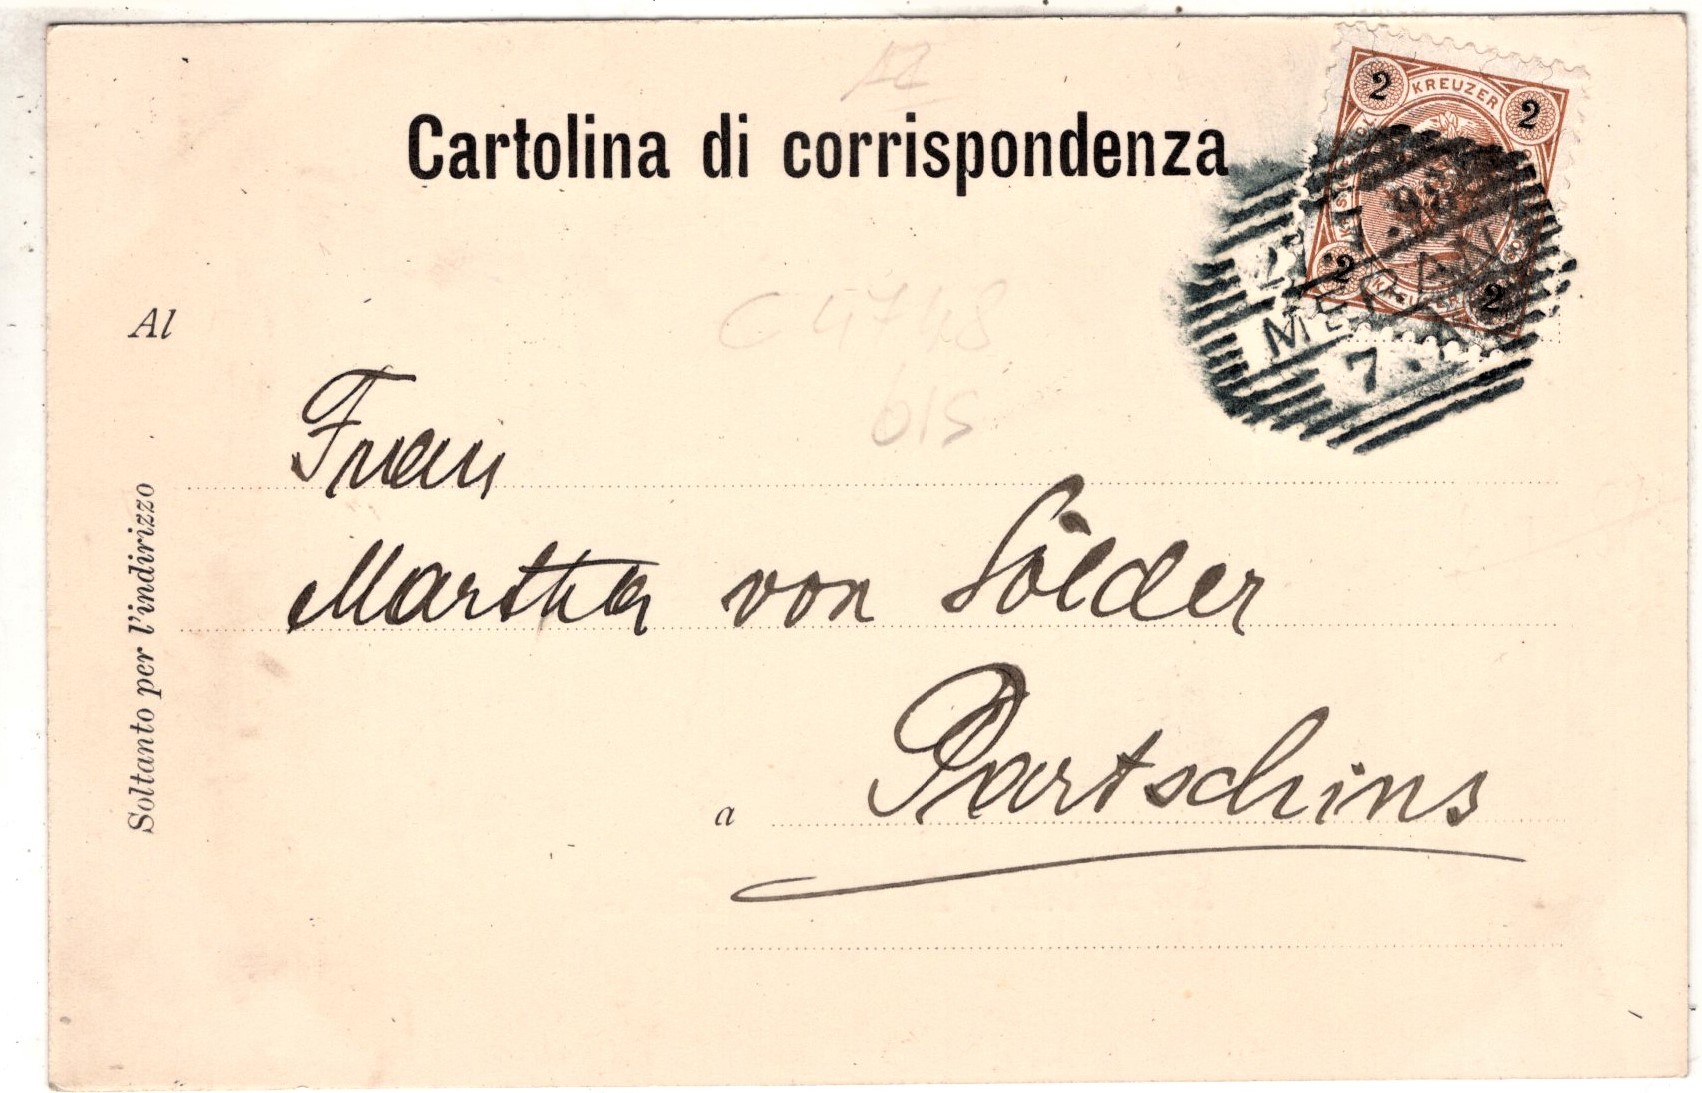 Cartolina di corrispondenza
2 KREUZER 2
2 KREUZER 2
98
MERAN
7.
C 4748
bis
Al
Frau
Martha von Sölder
a Partschins
Soltanto per l'indirizzo